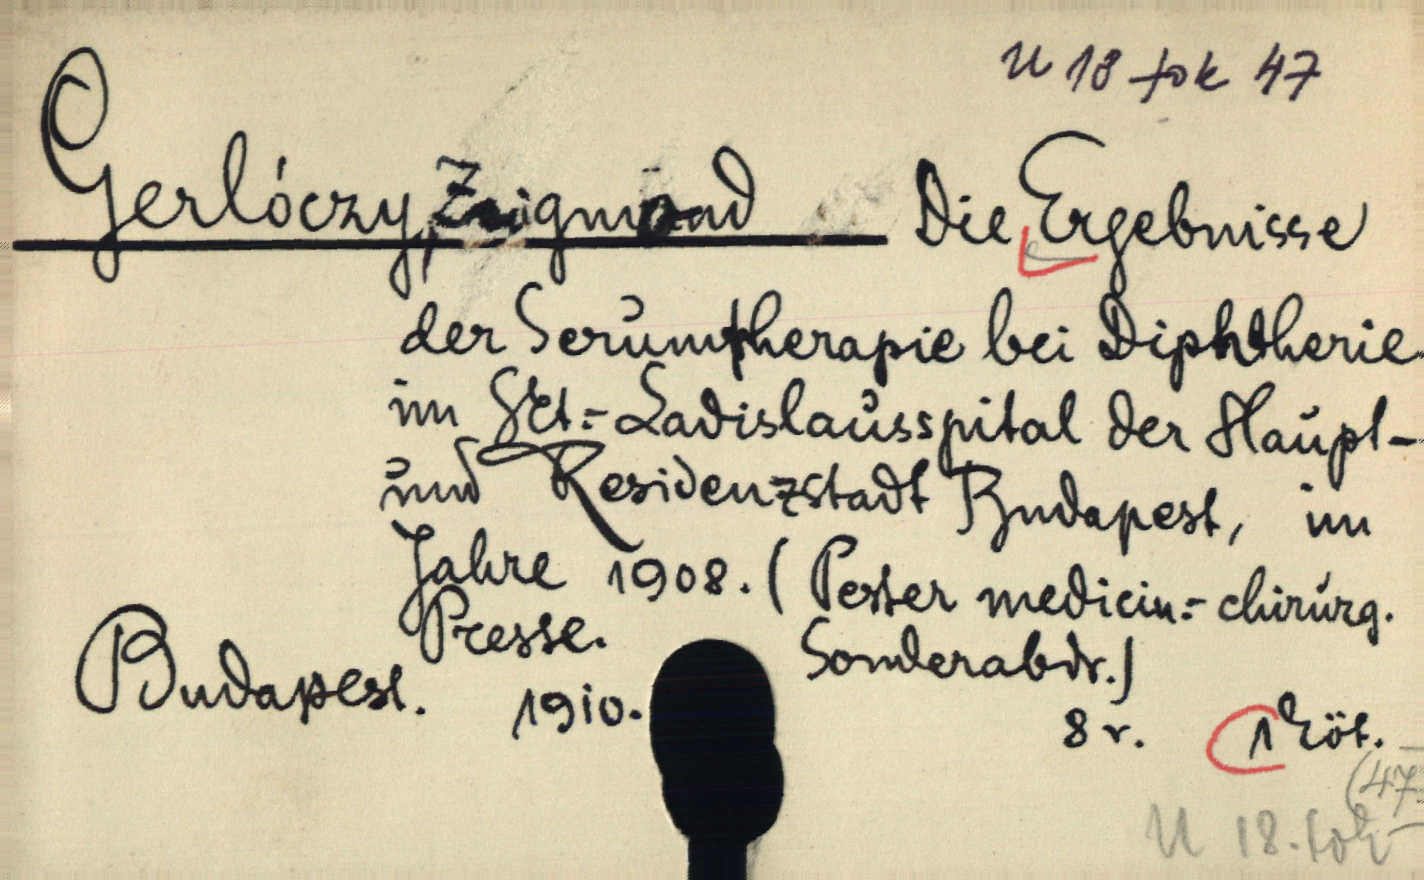 U 18 tok 47
Gerlóczy, Zsigmond Die Ergebnisse
der Serumtherapie bei Diphtherie
im Skt.-Ladislausspital der Haupt-
und Residenzstadt Budapest, im
Jahre 1908. (Pester medicin.- chirurg.
Presse. Sonderabdr.)
Budapest. 1910.
8 r. 1 köt.
(47
U 18. tok